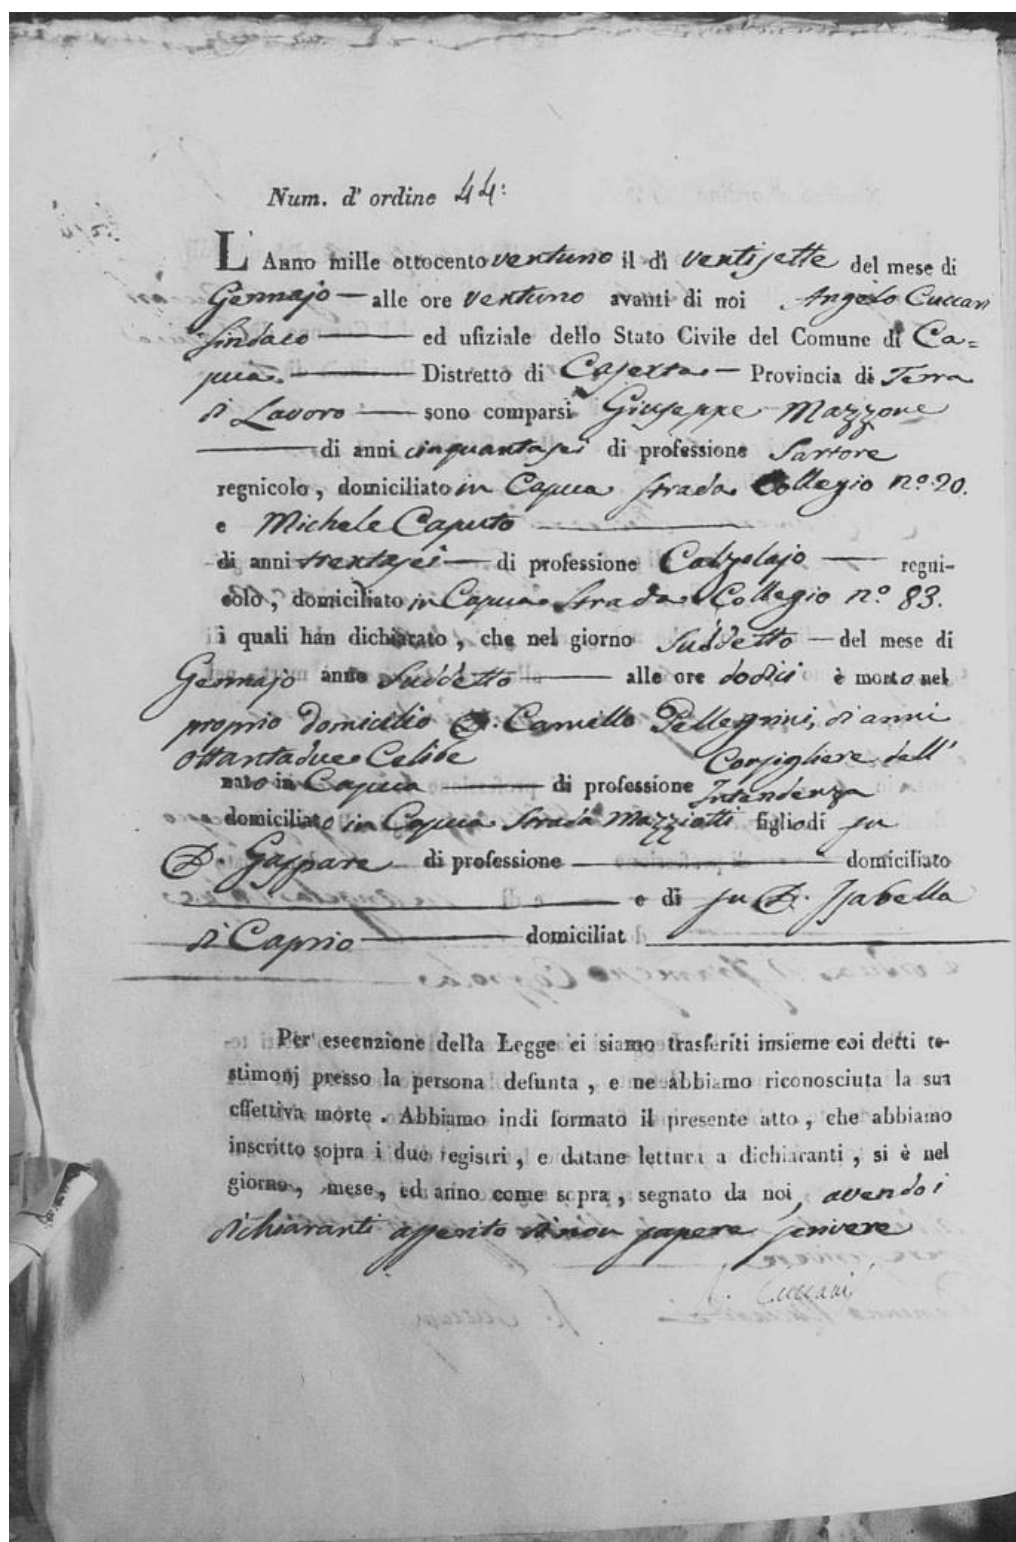 Num. d' ordine 44:
L' Anno mille ottocento ventuno il dì ventisette del mese di
Gennajo — alle ore ventuno avanti di noi Angelo Cuccari
Sindaco — ed ufiziale dello Stato Civile del Comune di Ca=
pua. — Distretto di Caserta — Provincia di Terra
di Lavoro — sono comparsi Giuseppe Mazzone
— di anni cinquantasei di professione Sartore
regnicolo, domiciliato in Capua Strada Collegio n.º 20.
e Michele Caputo —
di anni trentasei — di professione Calzolajo — regni-
colo, domiciliato in Capua Strada Collegio n.º 83.
i quali han dichiarato, che nel giorno Suddetto — del mese di
Gennajo anno Suddetto — alle ore dodici è morto nel
proprio domicilio D. Camillo Pellegrini, di anni
ottantadue Celibe Consigliere dell'
nato in Capua — di professione Intendenza
domiciliato in Capua Strada Mazziotti figlio di fu
D. Gaspare di professione — domiciliato
— e di fu D. Isabella
di Caprio — domiciliat —
Per esecuzione della Legge ci siamo trasferiti insieme coi detti te-
stimonj presso la persona defunta, e ne abbiamo riconosciuta la sua
effettiva morte. Abbiamo indi formato il presente atto, che abbiamo
inscritto sopra i due registri, e datane lettura a dichiaranti, si è nel
giorno, mese, ed anno come sopra, segnato da noi, avendo i
dichiaranti asserito di non sapere scrivere
Cuccari